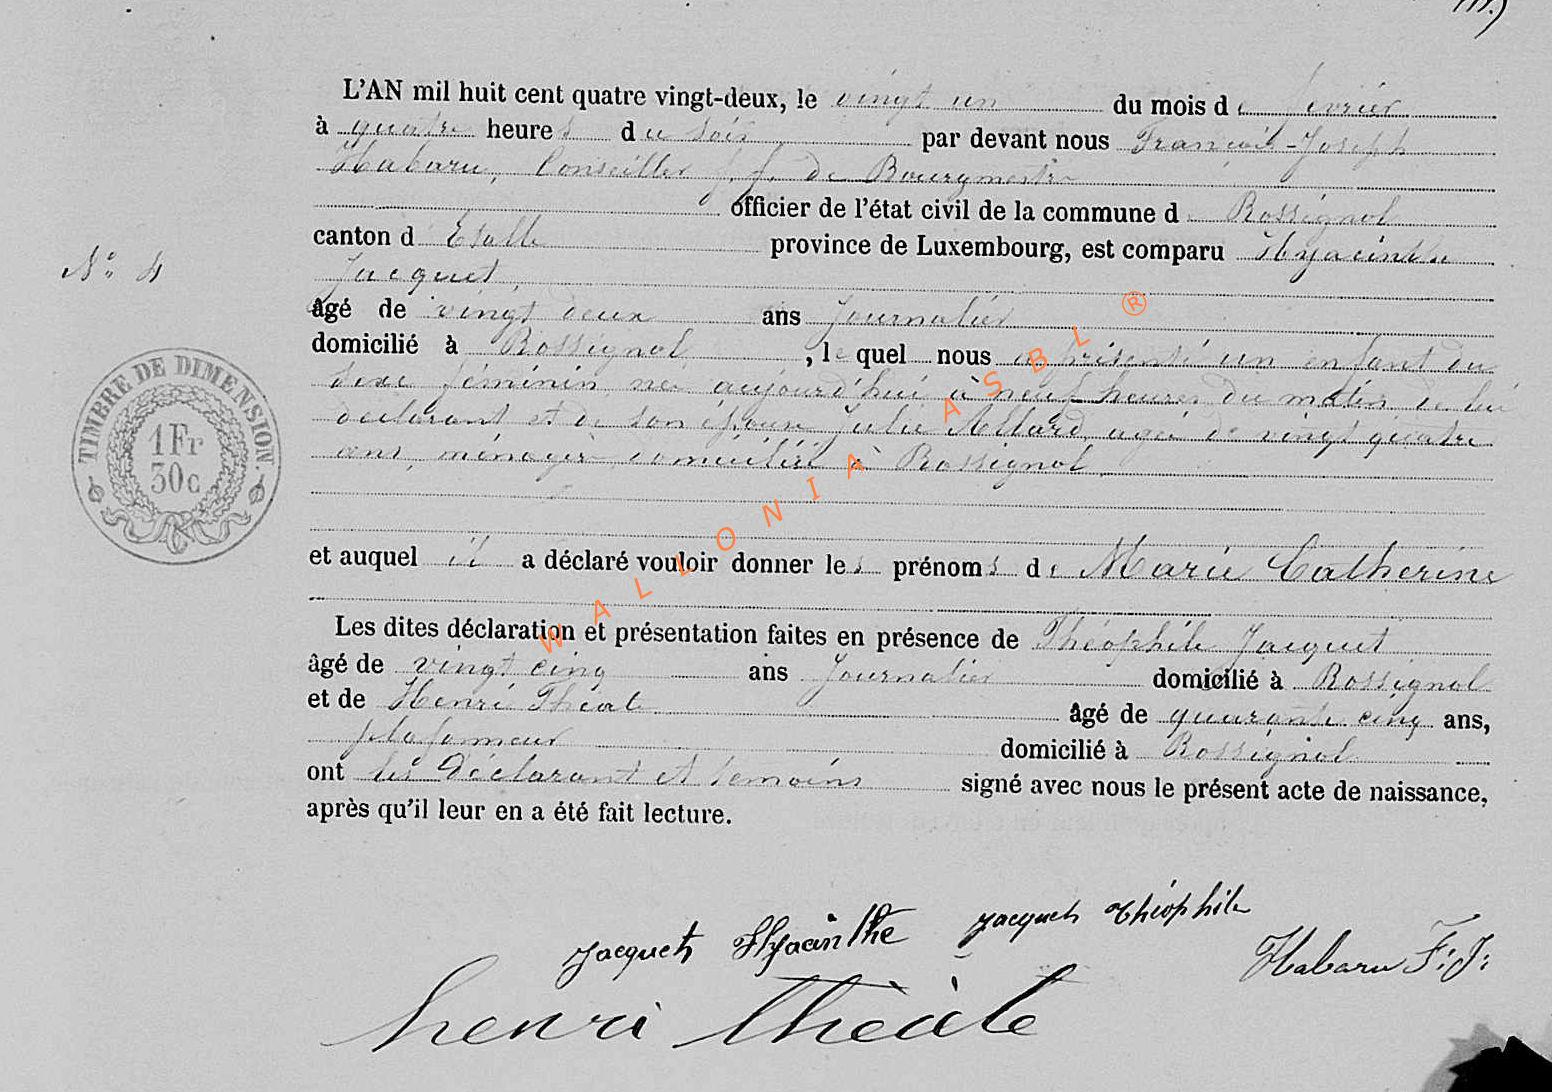 L'AN mil huit cent quatre vingt-deux, le vingt un du mois de fevrier
à quatre heures du soir par devant nous François-Joseph
Habaru, Conseiller f. f. de Bourgmestre
officier de l'état civil de la commune de Rossignol
canton d'Etalle province de Luxembourg, est comparu Hyacinthe
Jacquet,
N° 4
âgé de vingt deux ans Journalier
domicilié à Rossignol, lequel nous a présenté un enfant du
sexe féminin née aujourd'hui à neuf heures du matin, de lui
déclarant et de son épouse Julie Allard, agée de vingt quatre
ans, ménagère, domiciliée à Rossignol.
TIMBRE DE DIMENSION.
1 Fr
30 c
et auquel il a déclaré vouloir donner les prénoms de Marie Catherine
Les dites déclaration et présentation faites en présence de Théophile Jacquet
âgé de vingt cinq ans Journalier domicilié à Rossignol
et de Henri Théate âgé de quarante cinq ans,
plafonneur domicilié à Rossignol
ont les Déclarant et temoins signé avec nous le présent acte de naissance,
après qu'il leur en a été fait lecture.
WALLONIA ASBL ®
Jacquet Hyacinthe Jacquet Théophile
Habaru F: J:
henri théate